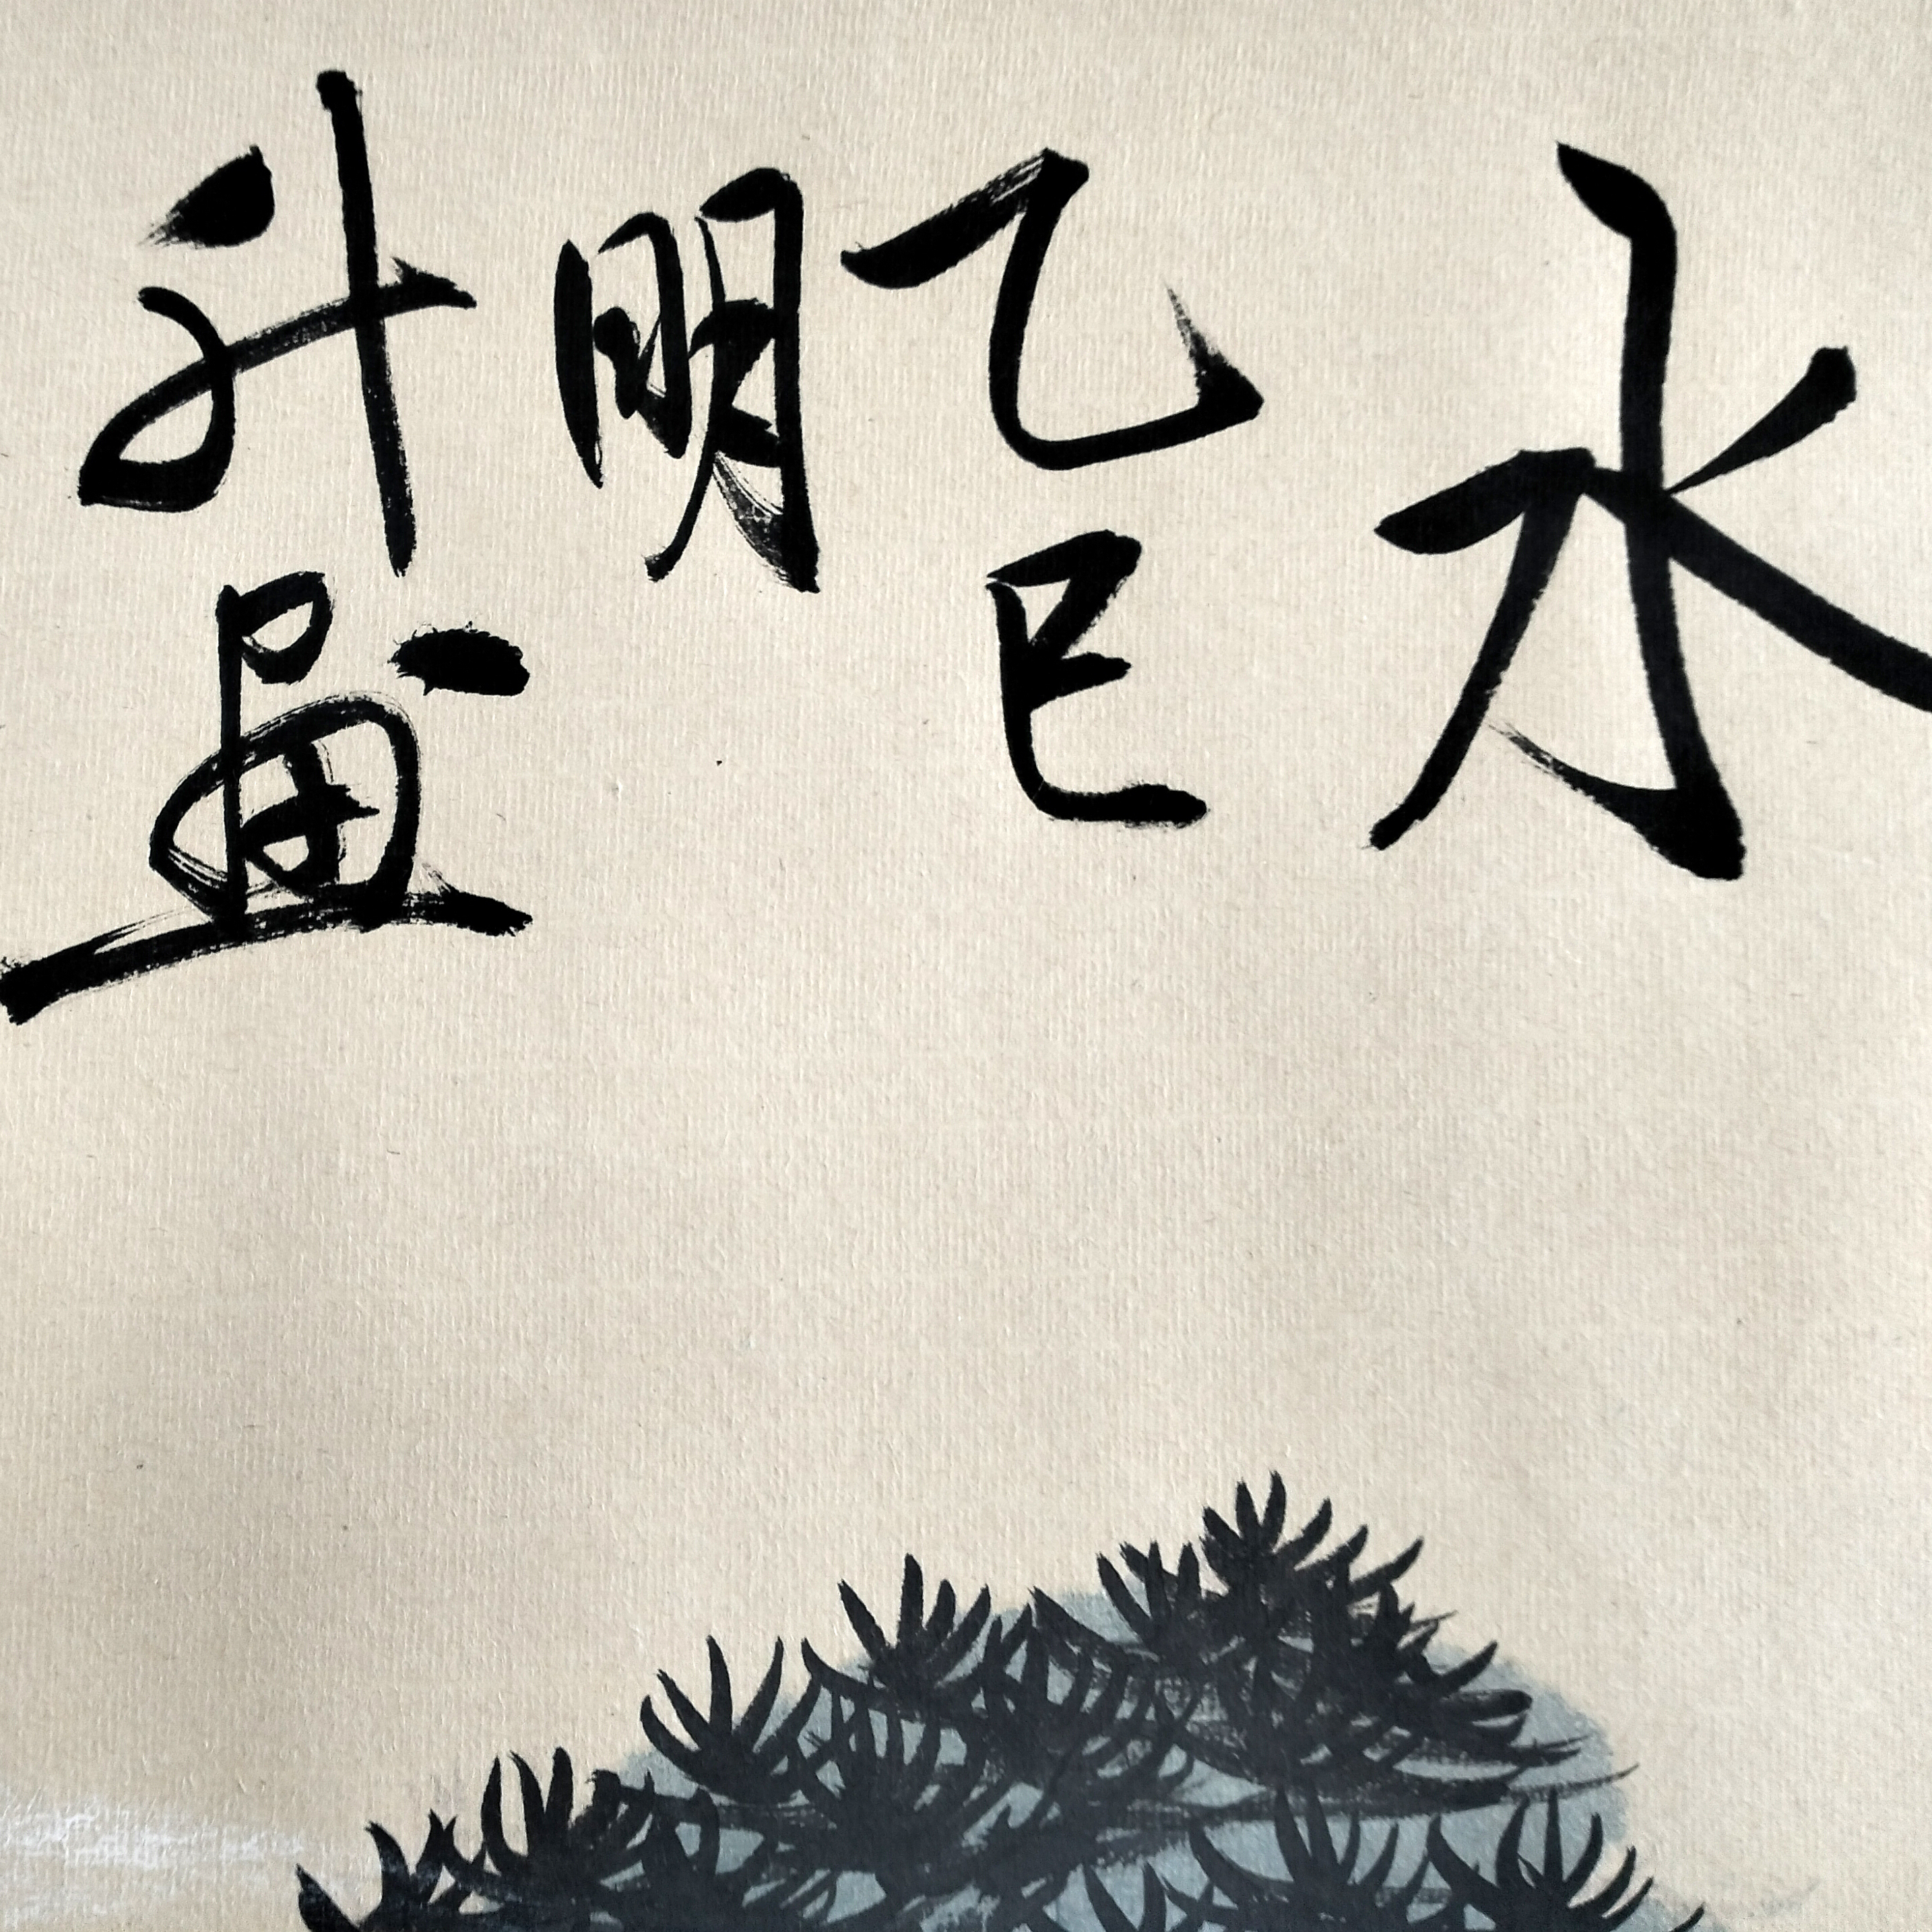 水
乙巳
明
升画